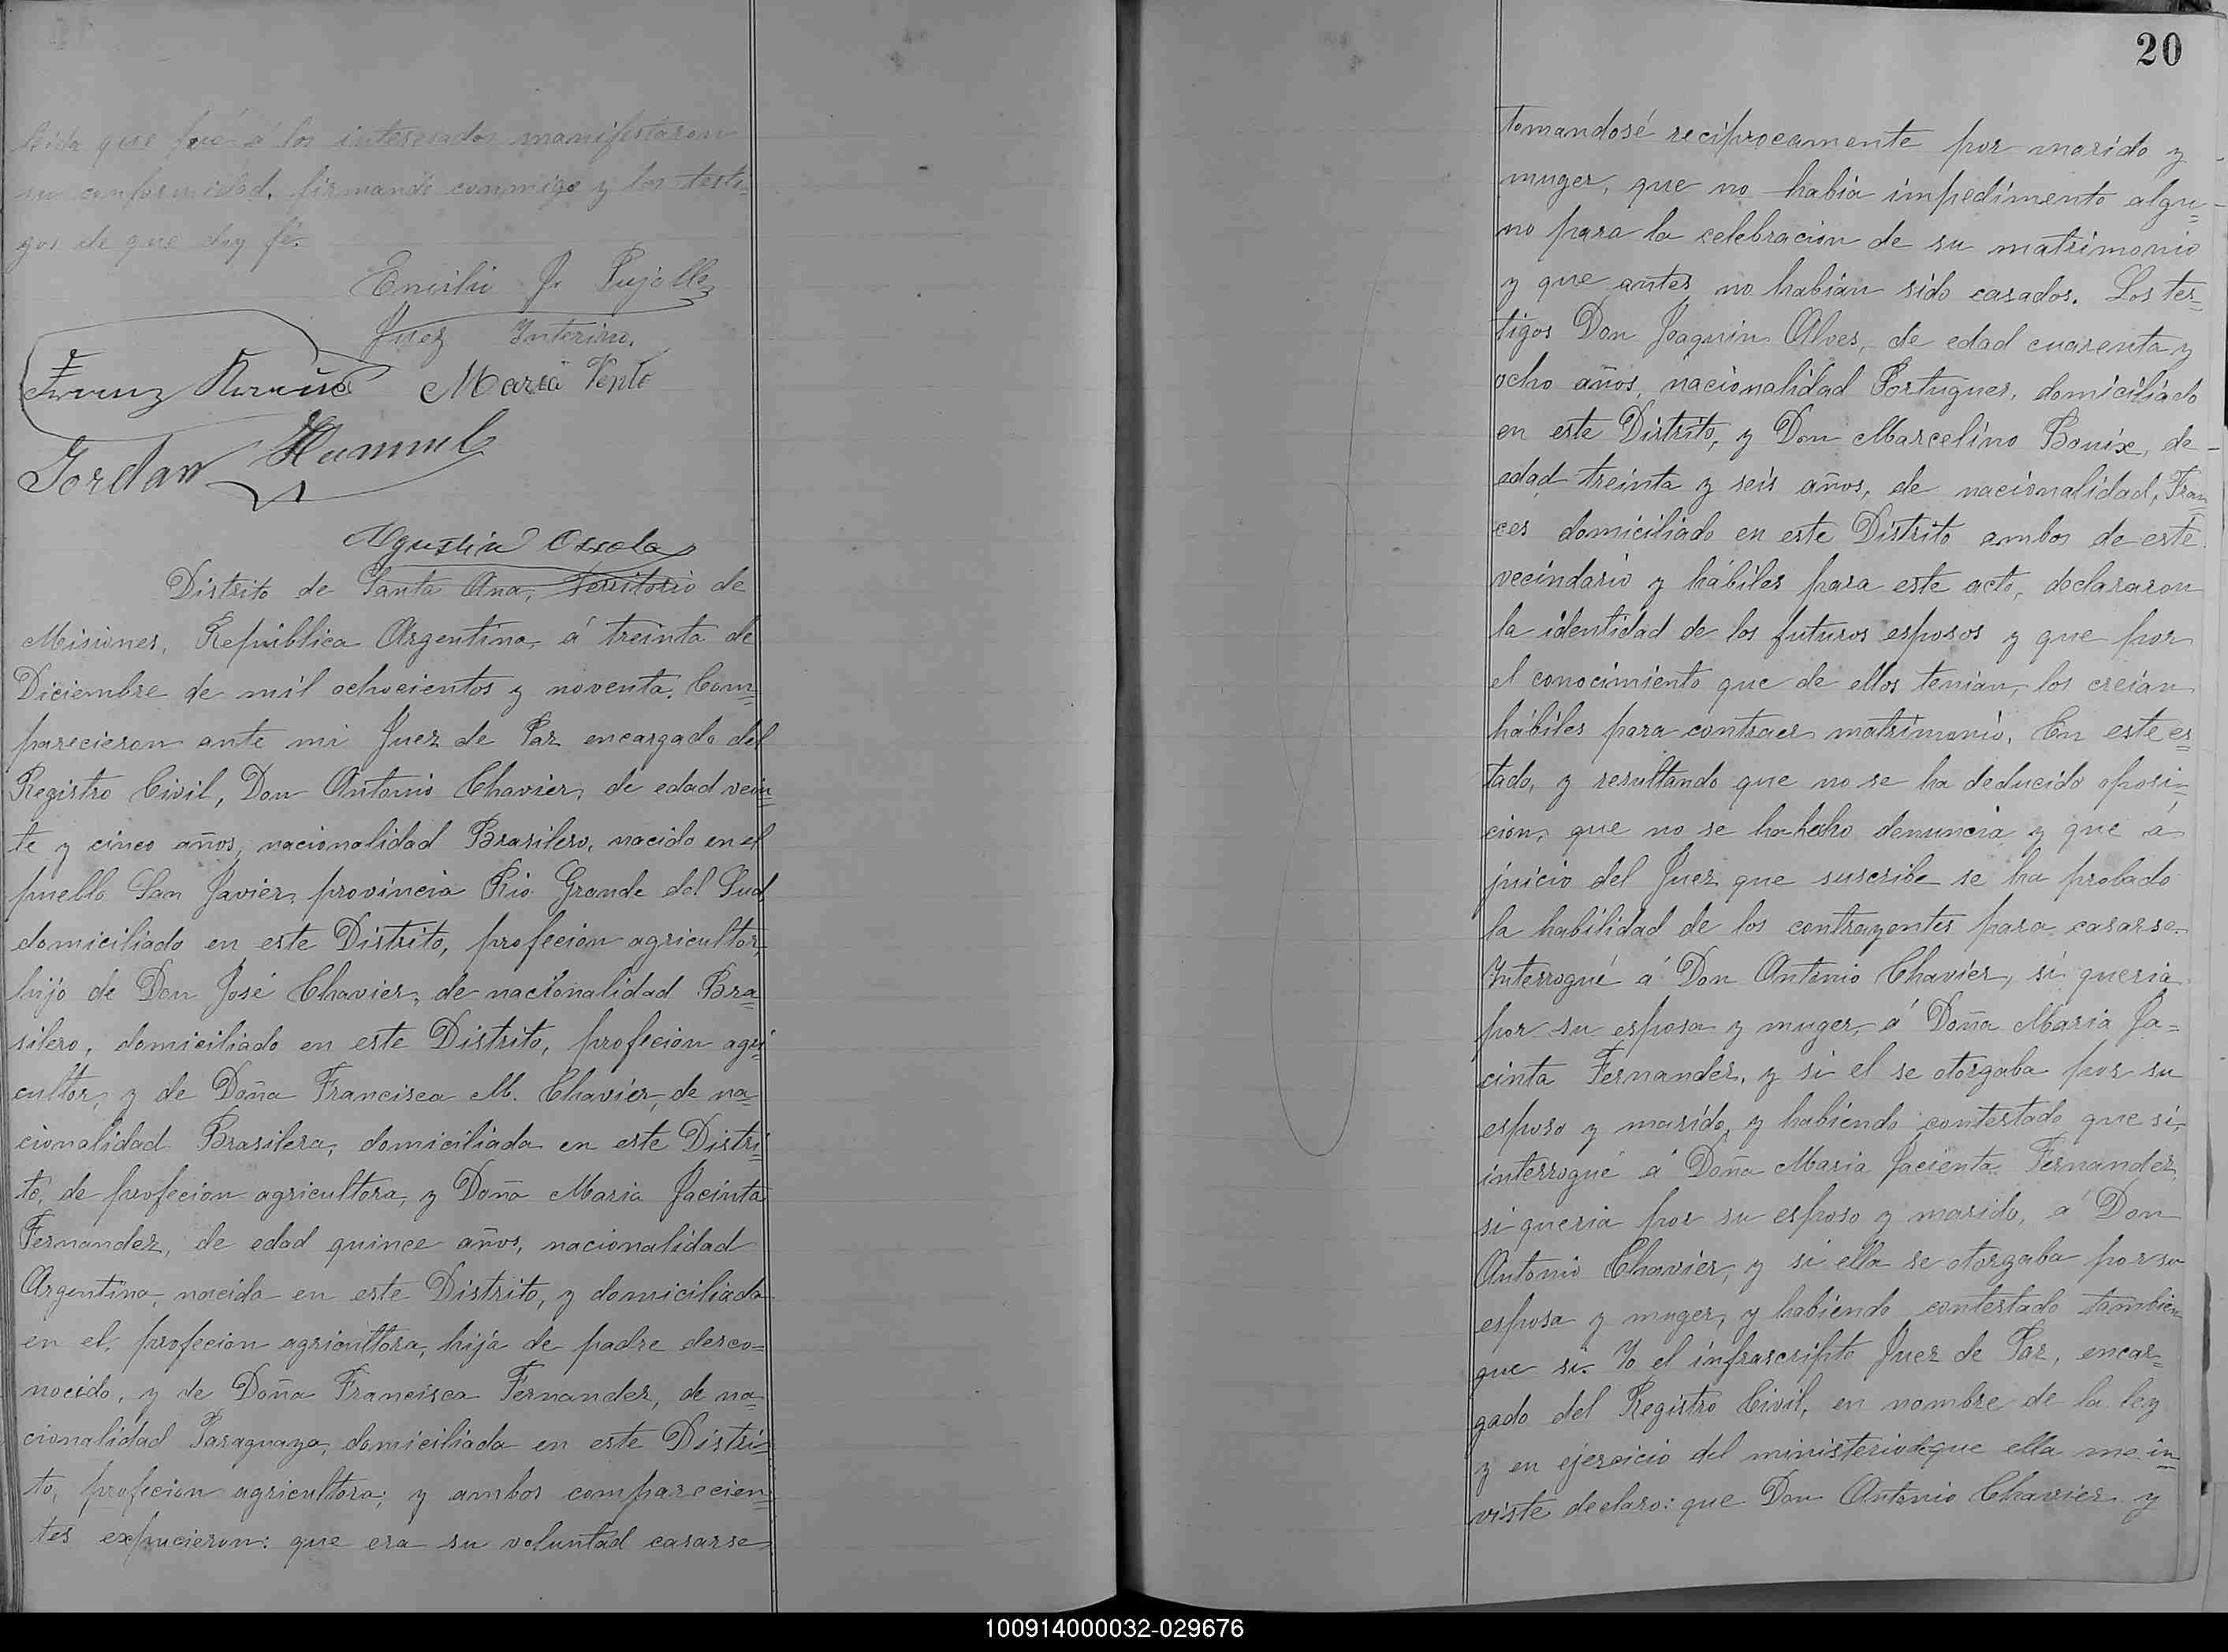 leida que fué á los interesados manifestaron
su conformidad, firmando conmigo y los testi=
gos de que doy fé.
Emilio J. Pujolle
Juez Interino.
Franz Maria Vento
Jordan Hummel
Agustin Ossola
Distrito de Santa Ana, Territorio de
Misiones, República Argentina, á treinta de
Diciembre de mil ochocientos y noventa. Com=
parecieron ante mi Juez de Paz encargado del
Registro Civil, Don Antonio Chavier, de edad vein=
te y cinco años, nacionalidad Brasilero, nacido en el
pueblo San Javier, provincia Rio Grande del Sud,
domiciliado en este Distrito, profecion agricultor,
hijo de Don José Chavier, de nacionalidad Bra=
silero, domiciliado en este Distrito, profecion agri=
cultor, y de Doña Francisca M. Chavier, de na=
cionalidad Brasilera, domiciliada en este Distri=
to, de profecion agricultora, y Doña Maria Jacinta
Fernandez, de edad quince años, nacionalidad
Argentina, nacida en este Distrito, y domiciliada
en el, profecion agricultora, hija de padre desco=
nocido, y de Doña Francisca Fernandez, de na=
cionalidad Paraguaya, domiciliada en este Distri=
to, profecion agricultora; y ambos comparecien=
tes expucieron: que era su voluntad casarse
20
tomandosé reciprocamente por marido y
muger, que no habia impedimento algu=
no para la celebracion de su matrimonio
y que antes no habian sido casados. Los tes=
tigos Don Joaquin Alves, de edad cuarenta y
ocho años, nacionalidad Portugues, domiciliado
en este Distrito, y Don Marcelino Bouix, de
edad treinta y seis años, de nacionalidad, Fran=
ces domiciliado en este Distrito ambos de este
vecindario y hábiles para este acto, declararon
la identidad de los futuros esposos y que por
el conocimiento que de ellos tenian, los creian
hábiles para contraer matrimonio. En este es=
tado, y resultando que no se ha deducido oposi=
cion, que no se ha hecho denuncia y que á
juicio del Juez que suscribe se ha probado
la habilidad de los contrayentes para casarse.
Interrogué á Don Antonio Chavier, si queria
por su esposa y muger, á Doña Maria Ja=
cinta Fernandez, y si el se otorgaba por su
esposo y marido, y habiendo contestado que si,
interrogué á Doña Maria Jacienta Fernandez,
si queria por su esposo y marido, á Don
Antonio Chavier, y si ella se otorgaba por su
esposa y muger, y habiendo contestado tambien
que si. Yo el infrascripto Juez de Paz, encar=
gado del Registro Civil, en nombre de la ley
y en ejercicio del ministerio de que ella me in=
viste declaro: que Don Antonio Chavier y
100914000032-029676